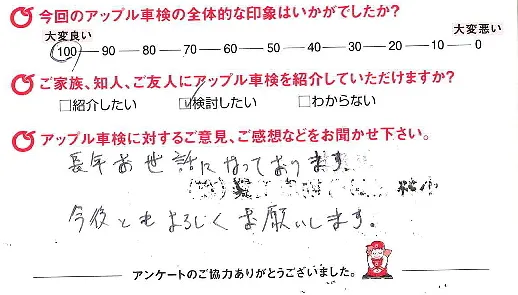 今回のアップル車検の全体的な印象はいかがでしたか?
大変良い 大変悪い
100 90 80 70 60 50 40 30 20 10 0
ご家族、知人、ご友人にアップル車検を紹介していただけますか?
□紹介したい ☑検討したい □わからない
アップル車検に対するご意見、ご感想などをお聞かせ下さい。
長年お世話になっております。
今後ともよろしくお願いします。
アンケートのご協力ありがとうございました。